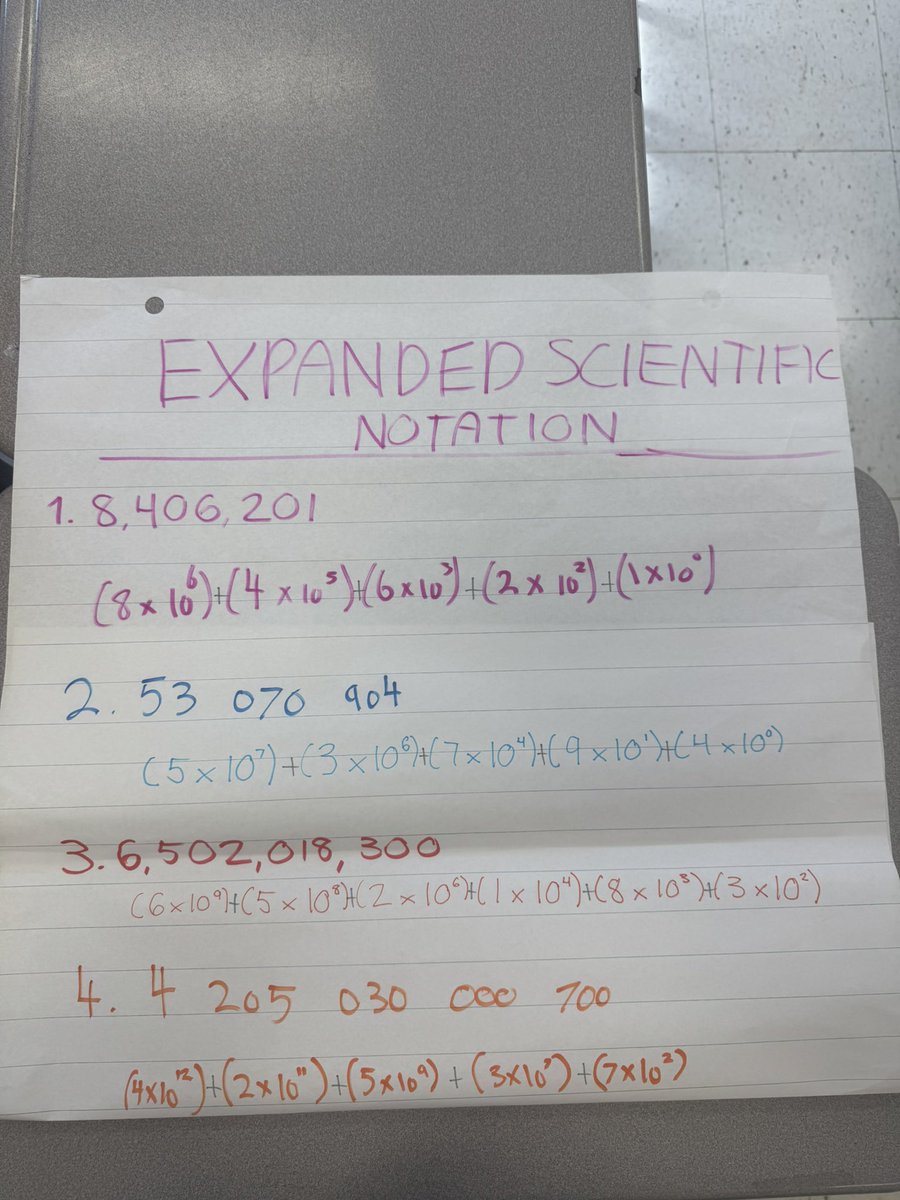 EXPANDED SCIENTIFIC
NOTATION
1. 8,406,201
(8 x 10⁶)+(4 x 10⁵)+(6x10³)+(2 x 10²)+(1x10⁰)
2. 53 070 904
(5 x 10⁷)+(3 x 10⁶)+(7x10⁴)+(9x10¹)+(4 x10⁰)
3. 6,502,018,300
(6x10⁹)+(5 x 10⁸)+(2 x 10⁶)+(1 x 10⁴)+(8 x 10³)+(3 x10²)
4. 4 205 030 000 700
(4x10¹²)+(2x10¹¹)+(5x10⁹) + (3x10⁷)+(7x10²)